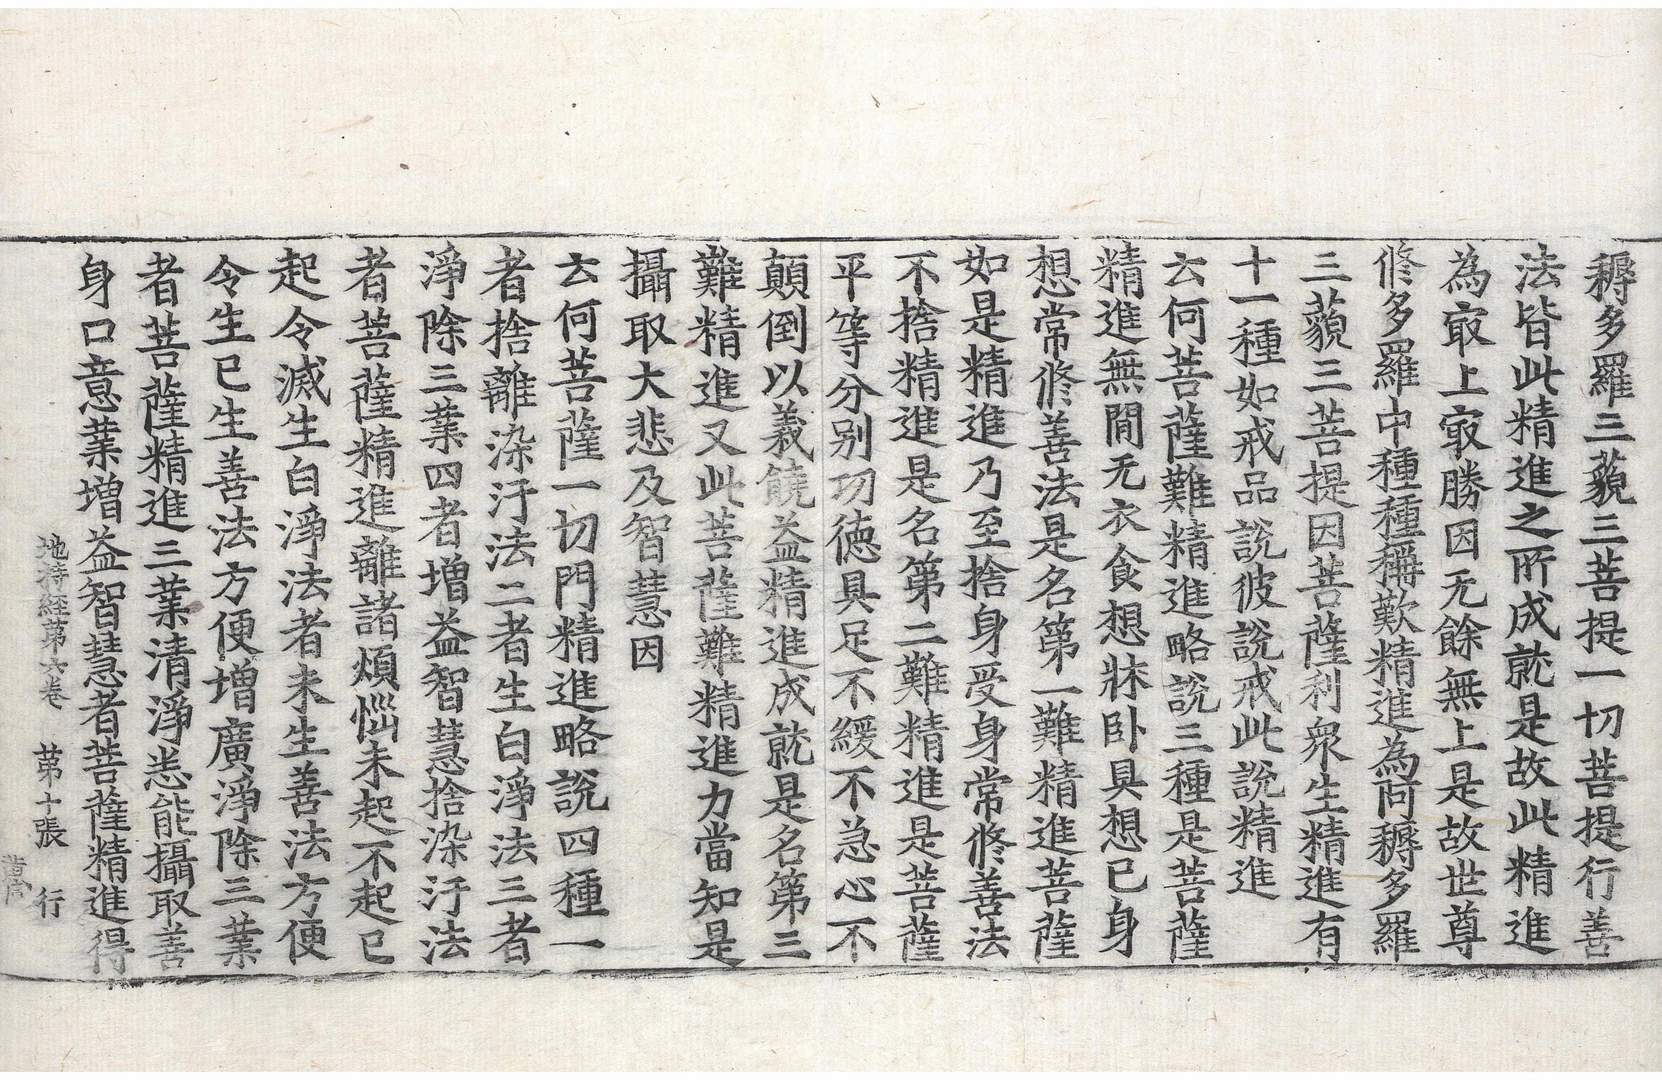 耨多羅三藐三菩提一切菩提行善
法皆此精進之所成就是故此精進
為㝡上㝡勝因无餘無上是故世尊
脩多羅中種種稱歎精進為阿耨多羅
三藐三菩提因菩薩利衆生精進有
十一種如戒品說彼說戒此說精進
云何菩薩難精進略說三種是菩薩
精進無間无衣食想牀卧具想已身
想常脩善法是名第一難精進菩薩
如是精進乃至捨身受身常脩善法
不捨精進是名第二難精進是菩薩
平等分别功徳具足不緩不急心不
顛倒以義饒益精進成就是名第三
難精進又此菩薩難精進力當知是
攝取大悲及智慧因
云何菩薩一切門精進略說四種一
者捨離染汙法二者生白淨法三者
淨除三業四者增益智慧捨染汙法
者菩薩精進離諸煩惱未起不起已
起令滅生白淨法者未生善法方便
令生已生善法方便增廣淨除三業
者菩薩精進三業清淨悉能攝取善
身口意業增益智慧者菩薩精進得
地持經第六卷 第十張 行